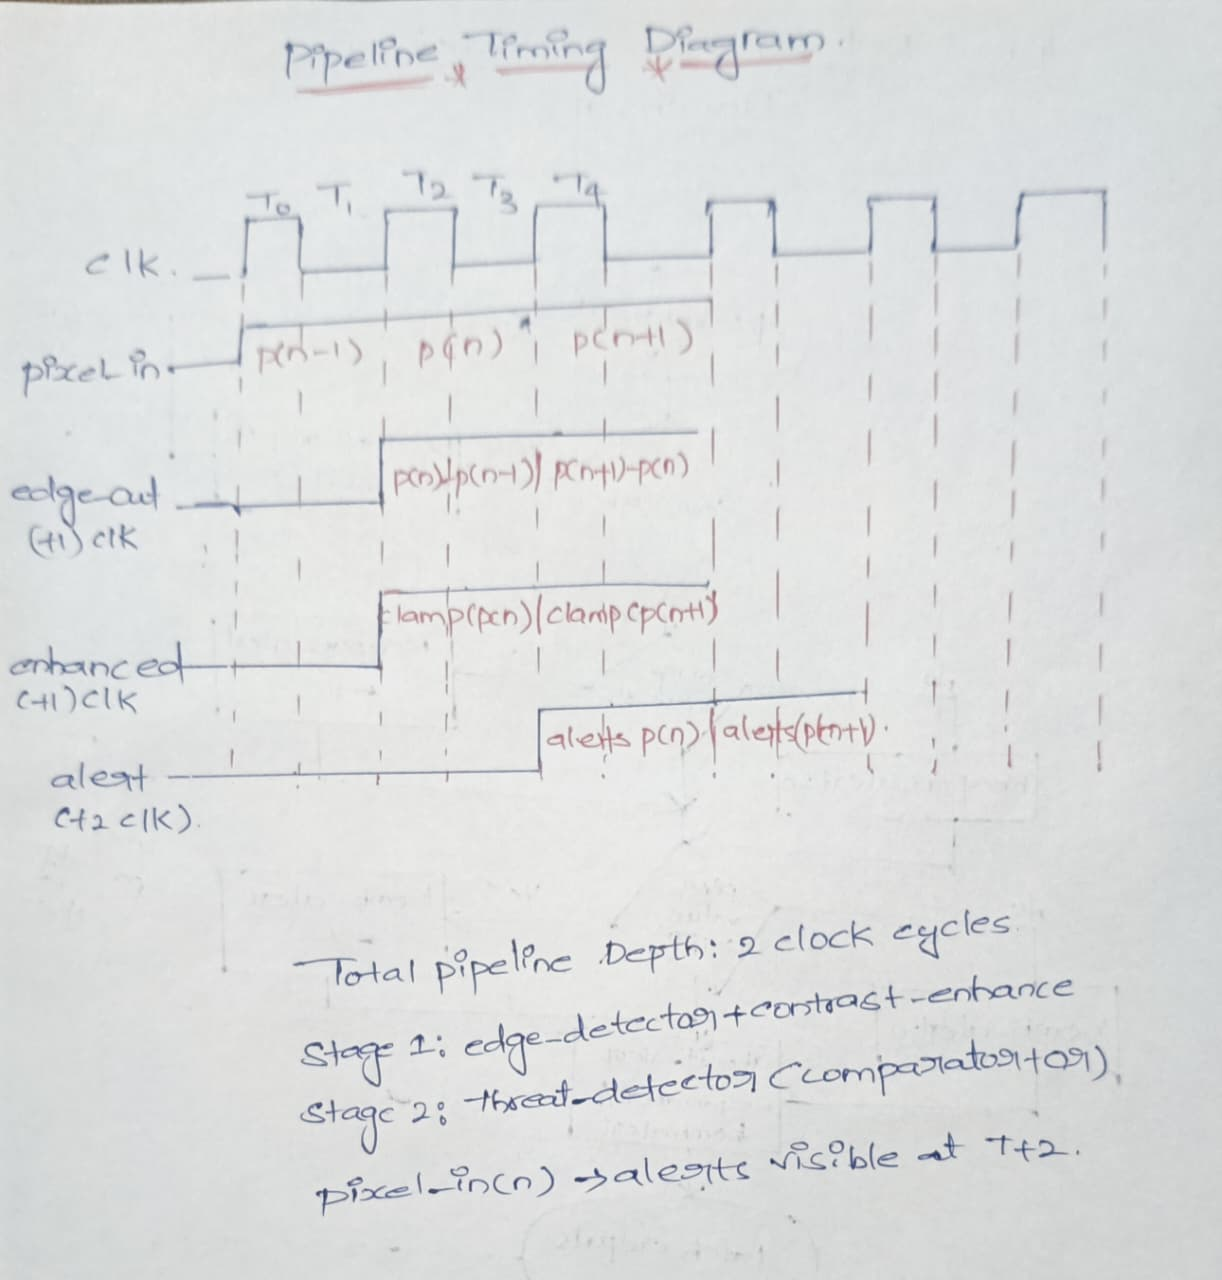 Pipeline Timing Diagram.
T0 T1 T2 T3 T4
clk.
pixel in
p(n-1) p(n) p(n+1)
edge-out
(+1) clk
p(n)-p(n-1) | p(n+1)-p(n)
enhanced
(+1) clk
clamp(p(n) | clamp(p(n+1)
alert
(+2 clk).
alerts p(n) | alerts(p(n+1).
Total pipeline Depth: 2 clock cycles.
Stage 1: edge-detector + contrast-enhance
Stage 2: threat-detector (comparator+or).
pixel-in(n) → alerts visible at T+2.